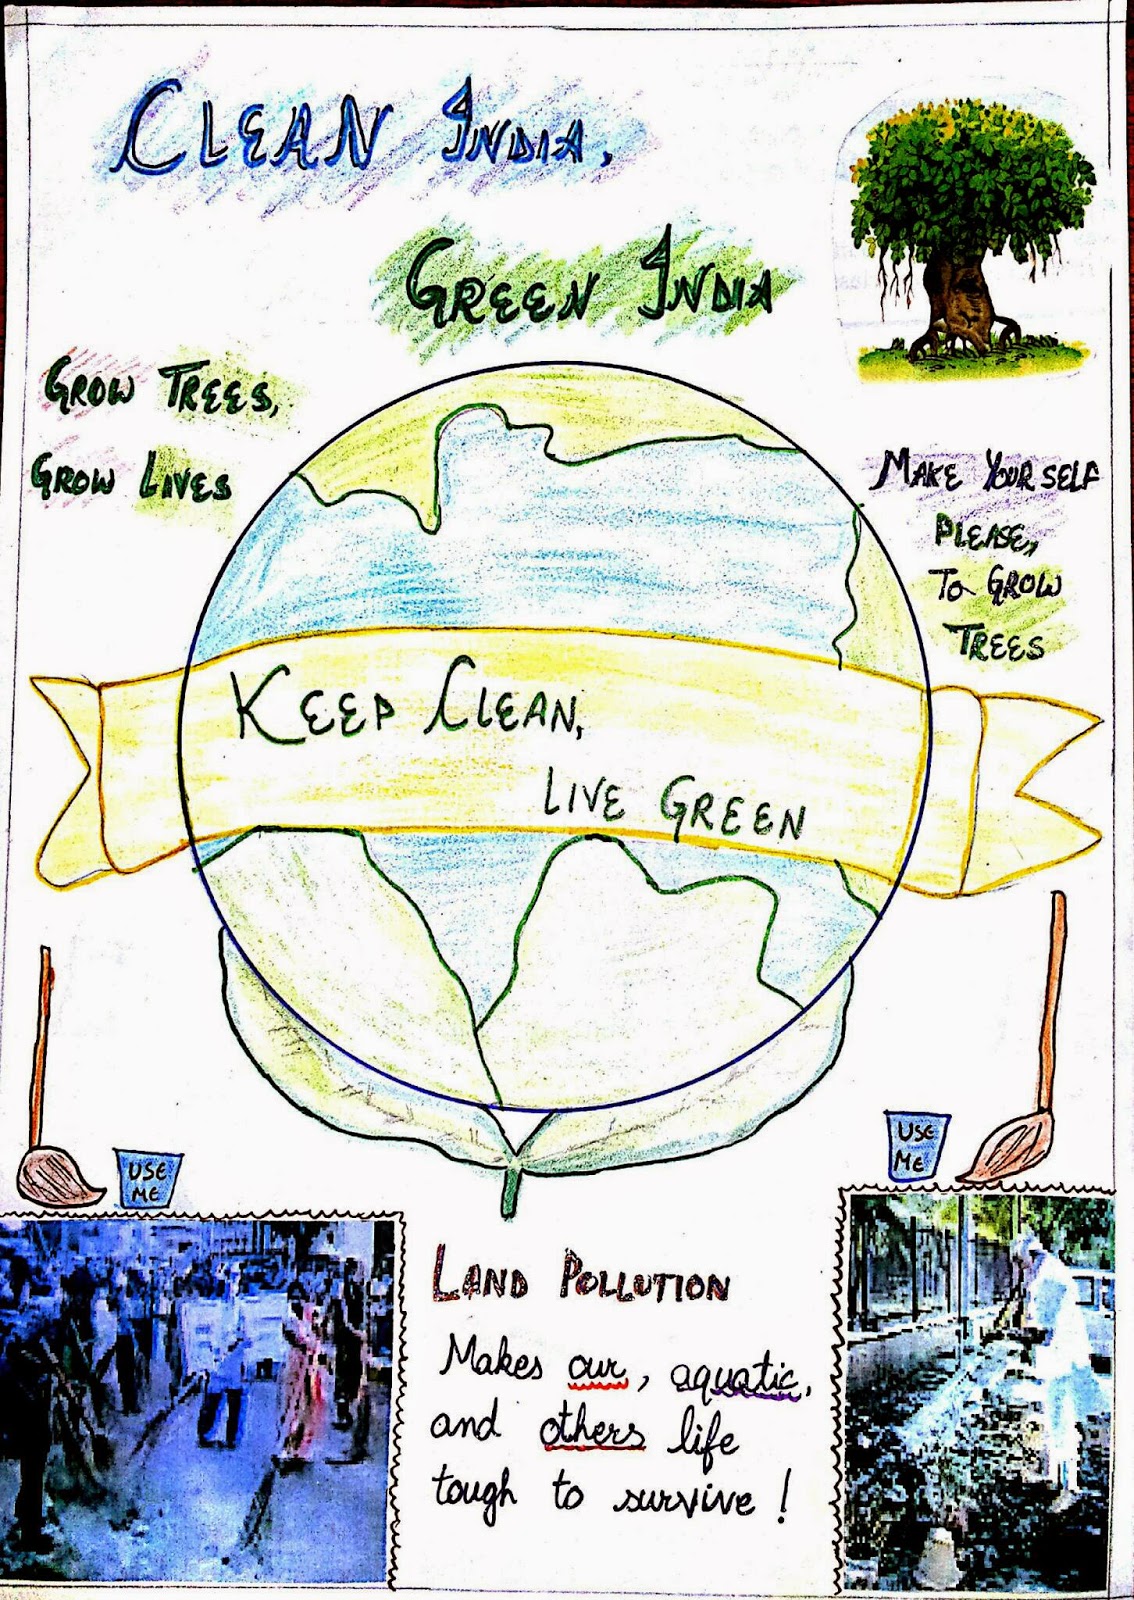 CLEAN INDIA,
GREEN INDIA
GROW TREES,
GROW LIVES
MAKE YOUR SELF
PLEASE,
TO GROW
TREES
KEEP CLEAN,
LIVE GREEN
USE
ME
USE
ME
LAND POLLUTION
Makes our, aquatic,
and others life
tough to survive!